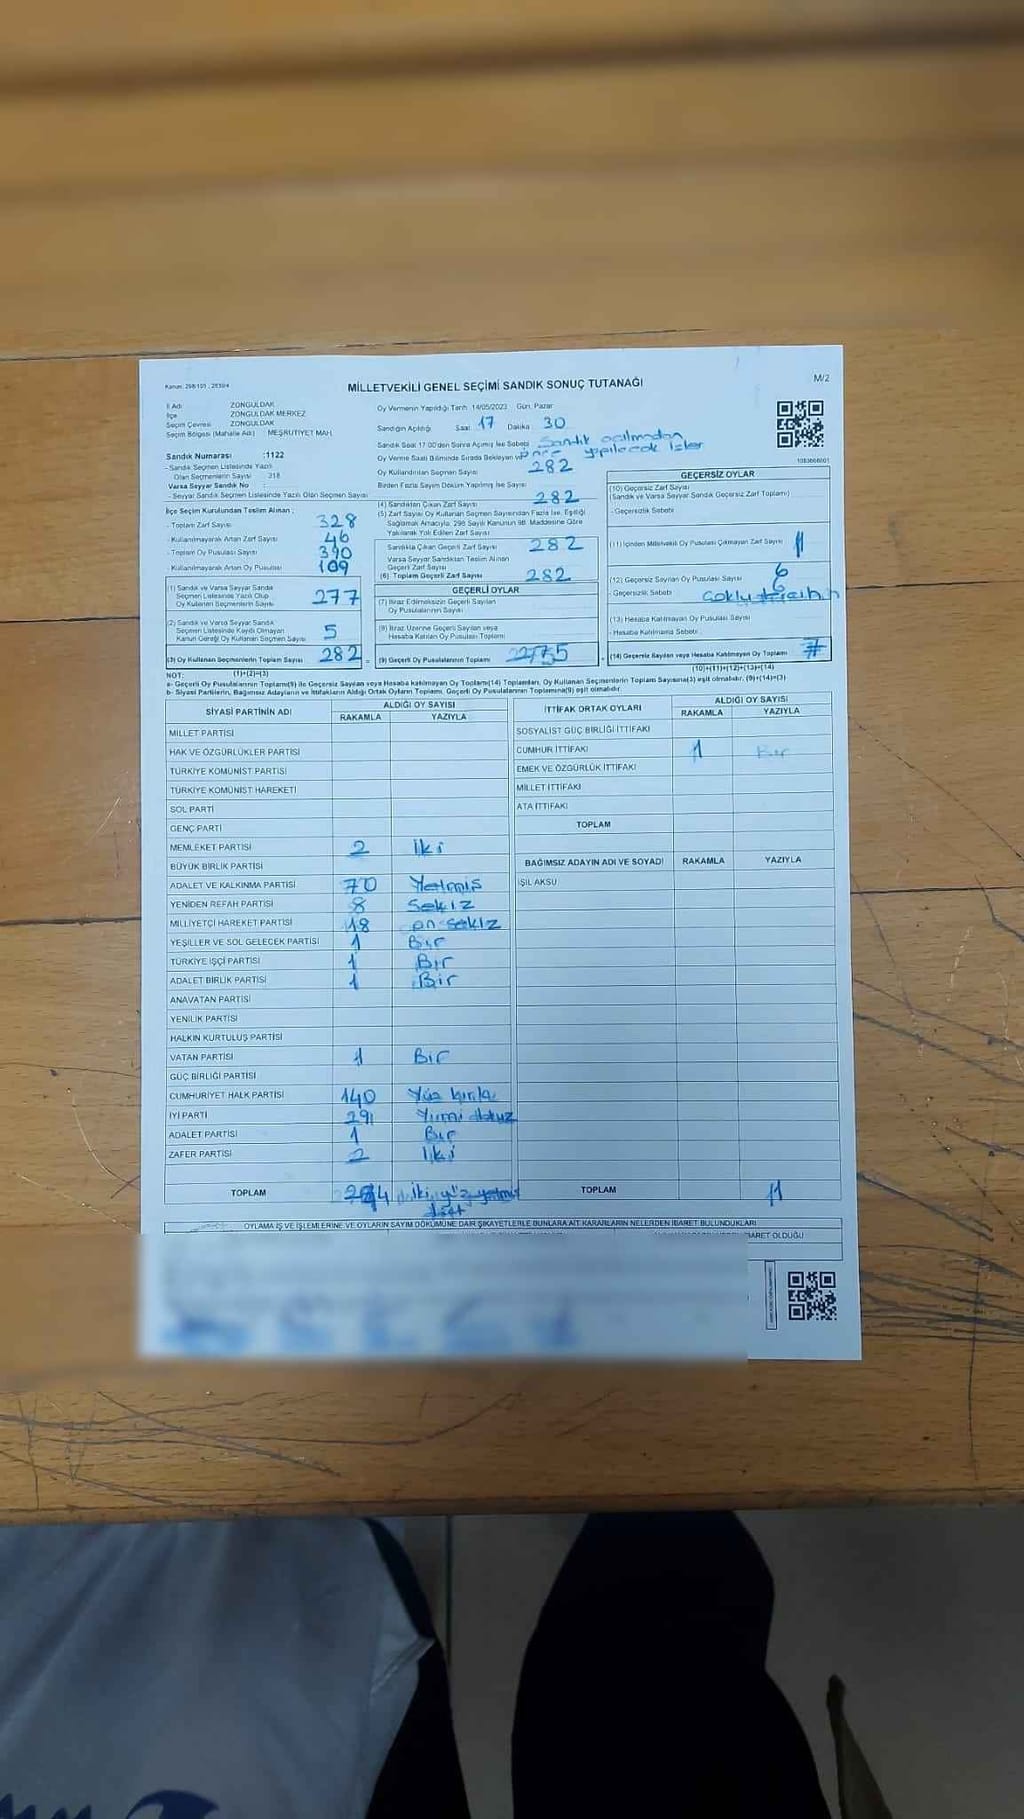 Kanun: 298/105 , 2839/4
MİLLETVEKİLİ GENEL SEÇİMİ SANDIK SONUÇ TUTANAĞI
M/2
İl Adı ZONGULDAK
İlçe ZONGULDAK MERKEZ
Seçim Çevresi ZONGULDAK
Seçim Bölgesi (Mahalle Adı) MEŞRUTİYET MAH.
Sandık Numarası :1122
- Sandık Seçmen Listesinde Yazılı
Olan Seçmenlerin Sayısı : 318
Varsa Seyyar Sandık No :
- Seyyar Sandık Seçmen Listesinde Yazılı Olan Seçmen Sayısı
İlçe Seçim Kurulundan Teslim Alınan :
- Toplam Zarf Sayısı 328
- Kullanılmayarak Artan Zarf Sayısı 46
- Toplam Oy Pusulası Sayısı 390
- Kullanılmayarak Artan Oy Pusulası 109
(1) Sandık ve Varsa Seyyar Sandık
Seçmen Listesinde Yazılı Olup
Oy Kullanan Seçmenlerin Sayısı 277
(2) Sandık ve Varsa Seyyar Sandık
Seçmen Listesinde Kaydı Olmayan
Kanun Gereği Oy Kullanan Seçmenlerin Sayısı 5
(3) Oy Kullanan Seçmenlerin Toplam Sayısı 282 =
(1)+(2)=(3)
Oy Vermenin Yapıldığı Tarih 14/05/2023 Gün: Pazar
Sandığın Açıldığı Saat 17 Dakika 30
Sandık Saat 17:00'den Sonra Açılmış İse Sebebi Sandık açılmadan
önce yapılacak işler
Oy Kullandırılan Seçmen Sayısı 282
Birden Fazla Sayım Döküm Yapılmış İse Sayısı
(4) Sandıktan Çıkan Zarf Sayısı 282
(5) Zarf Sayısı Oy Kullanan Seçmen Sayısından Fazla İse, Eşitliği
Sağlamak Amacıyla, 298 Sayılı Kanunun 98. Maddesine Göre
Yakılarak Yok Edilen Zarf Sayısı
Sandıkta Çıkan Geçerli Zarf Sayısı 282
Varsa Seyyar Sandıktan Teslim Alınan
Geçerli Zarf Sayısı
(6) Toplam Geçerli Zarf Sayısı 282
GEÇERLİ OYLAR
(7) İtiraz Edilmeksizin Geçerli Sayılan
Oy Pusulalarının Sayısı
(8) İtiraz Üzerine Geçerli Sayılan veya
Hesaba Katılan Oy Pusulası Toplamı
(9) Geçerli Oy Pusulalarının Toplamı +
GEÇERSİZ OYLAR
(10) Geçersiz Zarf Sayısı
(Sandık ve Varsa Seyyar Sandık Geçersiz Zarf Toplamı)
- Geçersizlik Sebebi
(11) İçinden Milletvekili Oy Pusulası Çıkmayan Zarf Sayısı 1
(12) Geçersiz Sayılan Oy Pusulası Sayısı 6
- Geçersizlik Sebebi 6
(13) Hesaba Katılmayan Oy Pusulası Sayısı
- Hesaba Katılmama Sebebi
(14) Geçersiz Sayılan veya Hesaba Katılmayan Oy Toplamı 7
(10)+(11)+(12)+(13)=(14)
NOT:
a- Geçerli Oy Pusulalarının Toplamı(9) ile Geçersiz Sayılan veya Hesaba Katılmayan Oy Toplamı(14) Toplamları, Oy Kullanan Seçmenlerin Toplam Sayısına(3) eşit olmalıdır. (9)+(14)=(3)
b- Siyasi Partilerin, Bağımsız Adayların ve İttifakların Aldığı Ortak Oyların Toplamı, Geçerli Oy Pusulalarının Toplamına(9) eşit olmalıdır.
SİYASİ PARTİNİN ADI ALDIĞI OY SAYISI
RAKAMLA YAZIYLA
MİLLET PARTİSİ
HAK VE ÖZGÜRLÜKLER PARTİSİ
TÜRKİYE KOMÜNİST PARTİSİ
TÜRKİYE KOMÜNİST HAREKETİ
SOL PARTİ
GENÇ PARTİ
MEMLEKET PARTİSİ 2 İki
BÜYÜK BİRLİK PARTİSİ
ADALET VE KALKINMA PARTİSİ 70 Yetmiş
YENİDEN REFAH PARTİSİ 8 Sekiz
MİLLİYETÇİ HAREKET PARTİSİ 18 on sekiz
YEŞİLLER VE SOL GELECEK PARTİSİ 1 Bir
TÜRKİYE İŞÇİ PARTİSİ 1 Bir
ADALET BİRLİK PARTİSİ 1 Bir
ANAVATAN PARTİSİ
YENİLİK PARTİSİ
HALKIN KURTULUŞ PARTİSİ
VATAN PARTİSİ 1 Bir
GÜÇ BİRLİĞİ PARTİSİ
CUMHURİYET HALK PARTİSİ 140 Yüz kırk
İYİ PARTİ 29 Yirmi dokuz
ADALET PARTİSİ 1 Bir
ZAFER PARTİSİ 2 İki
TOPLAM iki yüz yetmiş
dört
İTTİFAK ORTAK OYLARI ALDIĞI OY SAYISI
RAKAMLA YAZIYLA
SOSYALİST GÜÇ BİRLİĞİ İTTİFAKI
CUMHUR İTTİFAKI 1 Bir
EMEK VE ÖZGÜRLÜK İTTİFAKI
MİLLET İTTİFAKI
ATA İTTİFAKI
TOPLAM
BAĞIMSIZ ADAYIN ADI VE SOYADI RAKAMLA YAZIYLA
IŞIL AKSU
TOPLAM 1
OYLAMA İŞ VE İŞLEMLERİNE VE OYLARIN SAYIM DÖKÜMÜNE DAİR ŞİKAYETLERLE BUNLARA AİT KARARLARIN NELERDEN İBARET BULUNDUKLARI
İBARET OLDUĞU